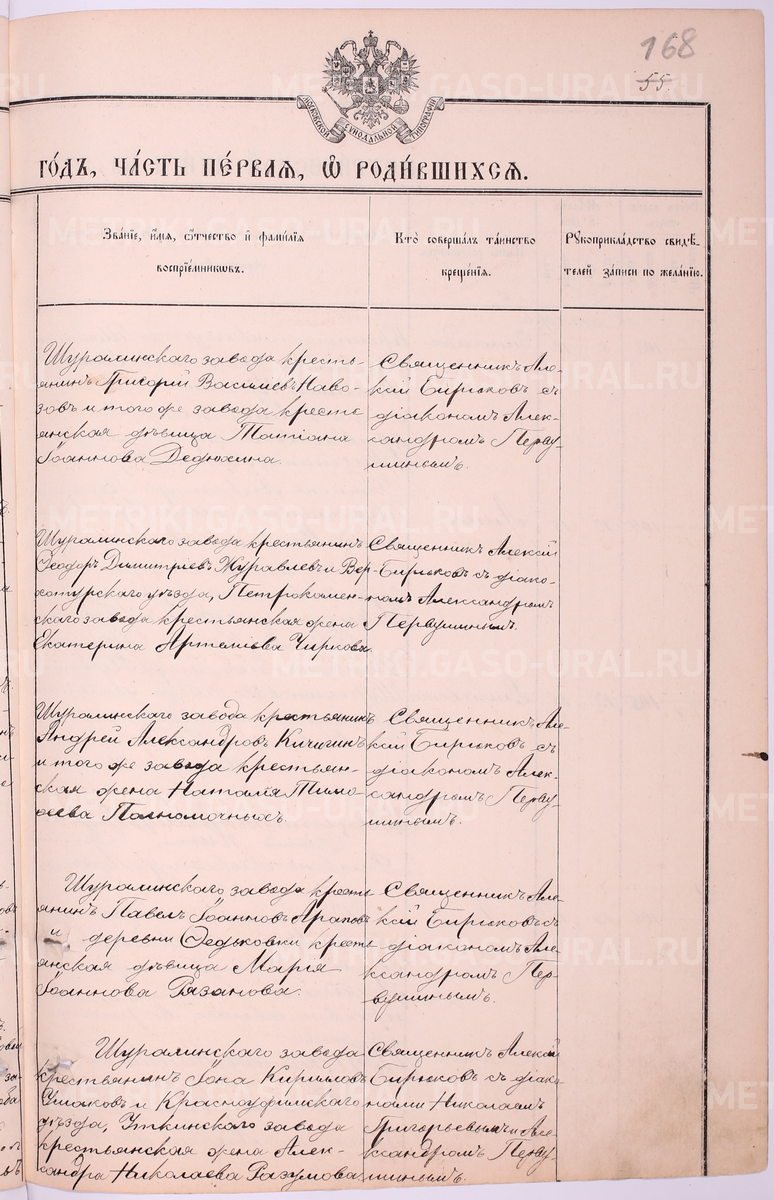 168
55.
МОСКОВСКОЙ СУНОДАЛЬНОЙ ТИПОГРАФІИ
METRIKI.GASO-URAL.RU
го́дъ, ча́сть пе́рваѧ, ѡ҆ роди́вшихсѧ.
Зва́нїе, и҆́мѧ, ѻ҆́тчество и҆ фами́лїѧ
воспрїе́мникѡвъ.
Кто̀ соверша́лъ та́инство
креще́нїѧ.
Рꙋкоприкла́дство свидѣ́-
телей за́писи по жела́нїю.
Шуралинскаго завода кресть-
янинъ Григорій Васильевъ Наво-
зовъ и того же завода кресть-
янская дѣвица Татіана
Іоаннова Дедюхина.
Священникъ Але-
ксій Бирюковъ съ
діакономъ Алек-
сандромъ Перву-
шинымъ.
Шуралинскаго завода крестьянинъ
Ѳеодоръ Димитріевъ Журавлевъ и Вер-
хотурскаго уѣзда, Петрокамен-
скаго завода крестьянская жена
Екатерина Артеміева Чиркова.
Священникъ Алексій
Бирюковъ съ діако-
номъ Александромъ
Первушинымъ.
Шуралинскаго завода крестьянинъ
Андрей Александровъ Кичигинъ
и того же завода крестьян-
ская жена Наталія Тимо-
ѳеева Полномочныхъ.
Священникъ Але-
ксій Бирюковъ съ
діакономъ Алек-
сандромъ Перву-
шинымъ.
Шуралинскаго завода кресть-
янинъ Павелъ Іоанновъ Араповъ
и деревни Ѳедьковки кресть-
янская дѣвица Марія
Іоаннова Рязанова.
Священникъ Але-
ксій Бирюковъ съ
діакономъ Але-
ксандромъ Пер-
вушинымъ.
Шуралинскаго завода
крестьянинъ Іона Кирилловъ
Ушаковъ и Красноуфимскаго
уѣзда, Уткинскаго завода
крестьянская жена Алек-
сандра Николаева Разумова.
Священникъ Алексій
Бирюковъ съ діако-
нами Николаемъ
Григорьевымъ и Але-
ксандромъ Перву-
шинымъ.